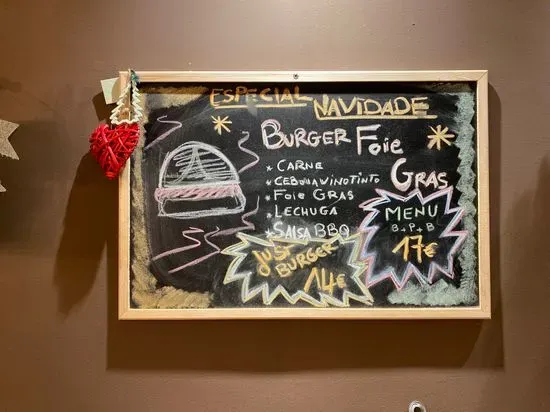 ESPECIAL NAVIDADE
BURGER FOIE GRAS
* CARNE
* CEBOLLA VINO TINTO
* FOIE GRAS
* LECHUGA
* SALSA BBQ
JUST BURGER 14€
MENU
B+P+B
17€